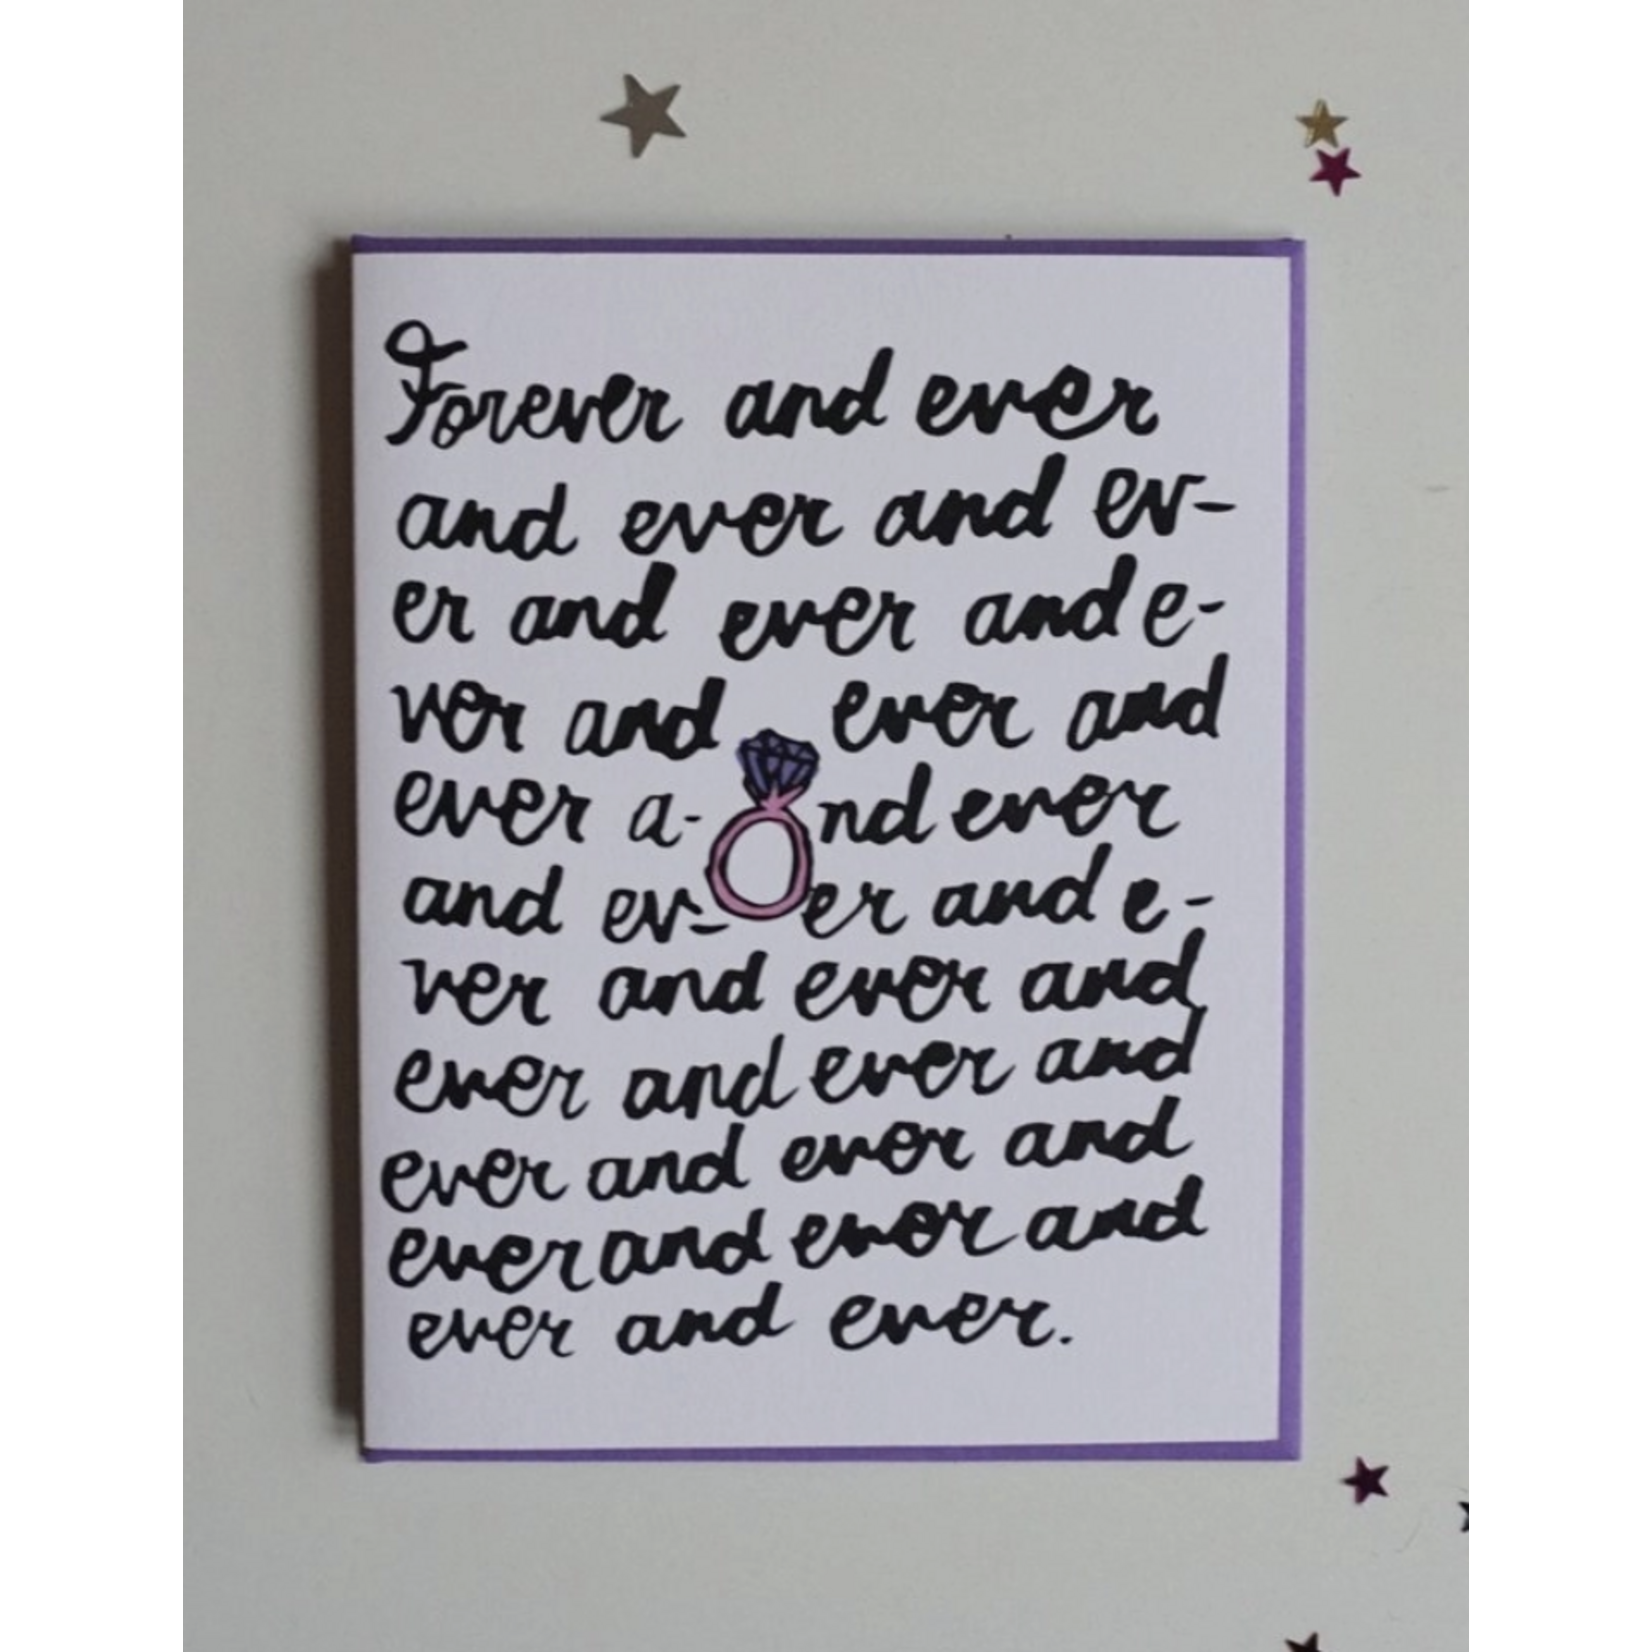 Forever and ever
and ever and ev-
er and ever and e-
ver and ever and
ever a-nd ever
and ev-er and e-
ver and ever and
ever and ever and
ever and ever and
ever and ever and
ever and ever.